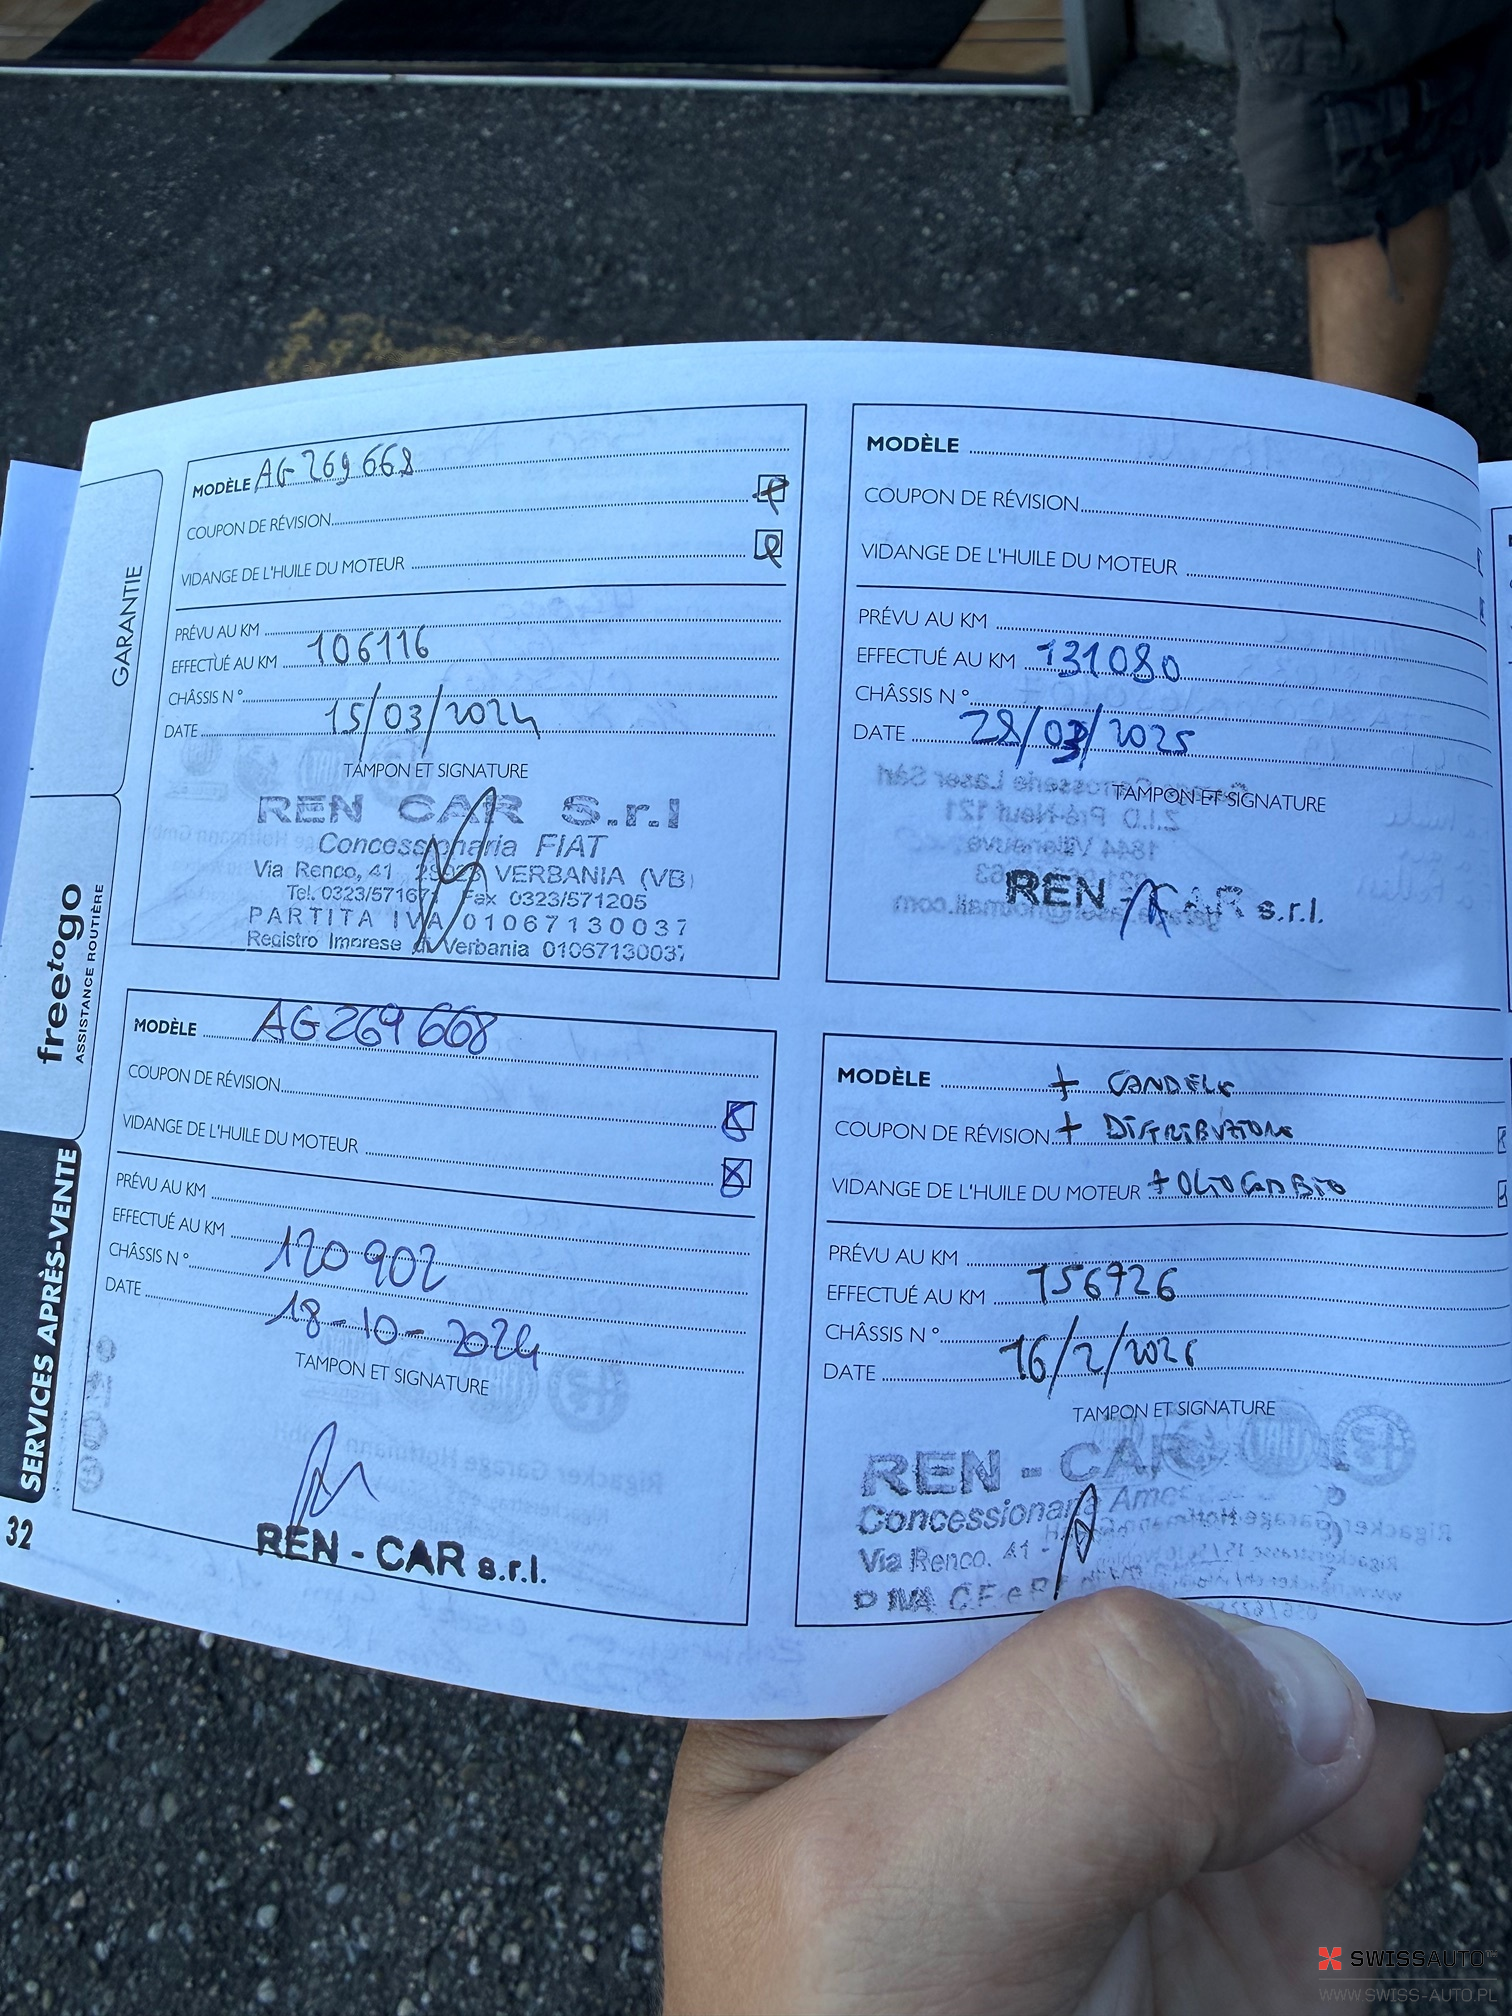 GARANTIE
freetogo
ASSISTANCE ROUTIÈRE
SERVICES APRÈS-VENTE
32
MODÈLE AG 269 668
COUPON DE RÉVISION
VIDANGE DE L'HUILE DU MOTEUR
PRÉVU AU KM
EFFECTUÉ AU KM 106116
CHÂSSIS N°
DATE 15/03/2024
TAMPON ET SIGNATURE
REN CAR S.r.l
Concessionaria FIAT
Via Renco, 41 VERBANIA (VB)
Tel. 0323/571671 Fax 0323/571205
PARTITA IVA 01067130037
Registro Imprese di Verbania 01067130037
MODÈLE
COUPON DE RÉVISION
VIDANGE DE L'HUILE DU MOTEUR
PRÉVU AU KM
EFFECTUÉ AU KM 131080
CHÂSSIS N°
DATE 28/03/2025
TAMPON ET SIGNATURE
REN - CAR s.r.l.
MODÈLE AG269668
COUPON DE RÉVISION
VIDANGE DE L'HUILE DU MOTEUR
PRÉVU AU KM
EFFECTUÉ AU KM 120902
CHÂSSIS N°
DATE 18-10-2024
TAMPON ET SIGNATURE
REN - CAR s.r.l.
MODÈLE + CANDELE
COUPON DE RÉVISION + DISTRIBUZIONE
VIDANGE DE L'HUILE DU MOTEUR + OLIO CAMBIO
PRÉVU AU KM
EFFECTUÉ AU KM 156726
CHÂSSIS N°
DATE 16/2/2026
TAMPON ET SIGNATURE
REN - CAR
Concessionaria
Via Renco, 41 -
P. IVA C.F. e R
SWISSAUTO
WWW.SWISS-AUTO.PL